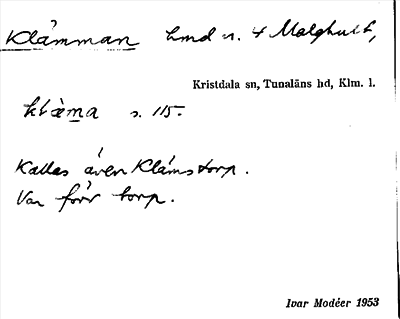 Klämman hmd u. 4 Malghult,
Kristdala sn, Tunaläns hd, Klm. l.
klæ̀ma s. 115.
Kallas även Klämstorp.
Var förr torp.
Ivar Modéer 1953